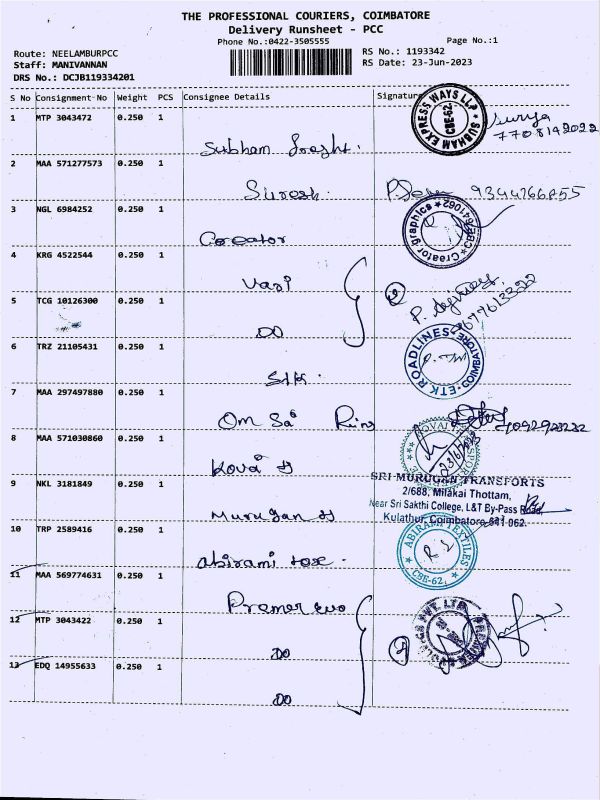 THE PROFESSIONAL COURIERS, COIMBATORE
Delivery Runsheet - PCC
Phone No.:0422-3505555
Page No.:1
Route: NEELAMBURPCC
Staff: MANIVANNAN
DRS No.: DCJB119334201
RS No.: 1193342
RS Date: 23-Jun-2023
S No Consignment-No Weight PCS Consignee Details Signature
1 MTP 3043472 0.250 1
Subham
SUBHAM EXPRESS WAYS LLP CBE-62
Surya
7708142022
2 MAA 571277573 0.250 1
Suresh
9344766855
3 NGL 6984252 0.250 1
Creator
Creator graphics
4 KRG 4522544 0.250 1
5 TCG 10126300 0.250 1
DO
2
6 TRZ 21105431 0.250 1
ETK ROADLINES COIMBATORE
7 MAA 297497880 0.250 1
Om Sai Ring
8 MAA 571030860 0.250 1
Kovai
23/6/23
9 NKL 3181849 0.250 1
Murugan
SRI MURUGAN TRANSPORTS
2/688, Milakai Thottam,
Near Sri Sakthi College, L&T By-Pass Road,
Kulathur, Coimbatore-641 062.
10 TRP 2589416 0.250 1
Abirami tex
ABIRAMI TEXTILES CBE-62
11 MAA 569774631 0.250 1
12 MTP 3043422 0.250 1
DO
13 EDQ 14955633 0.250 1
DO